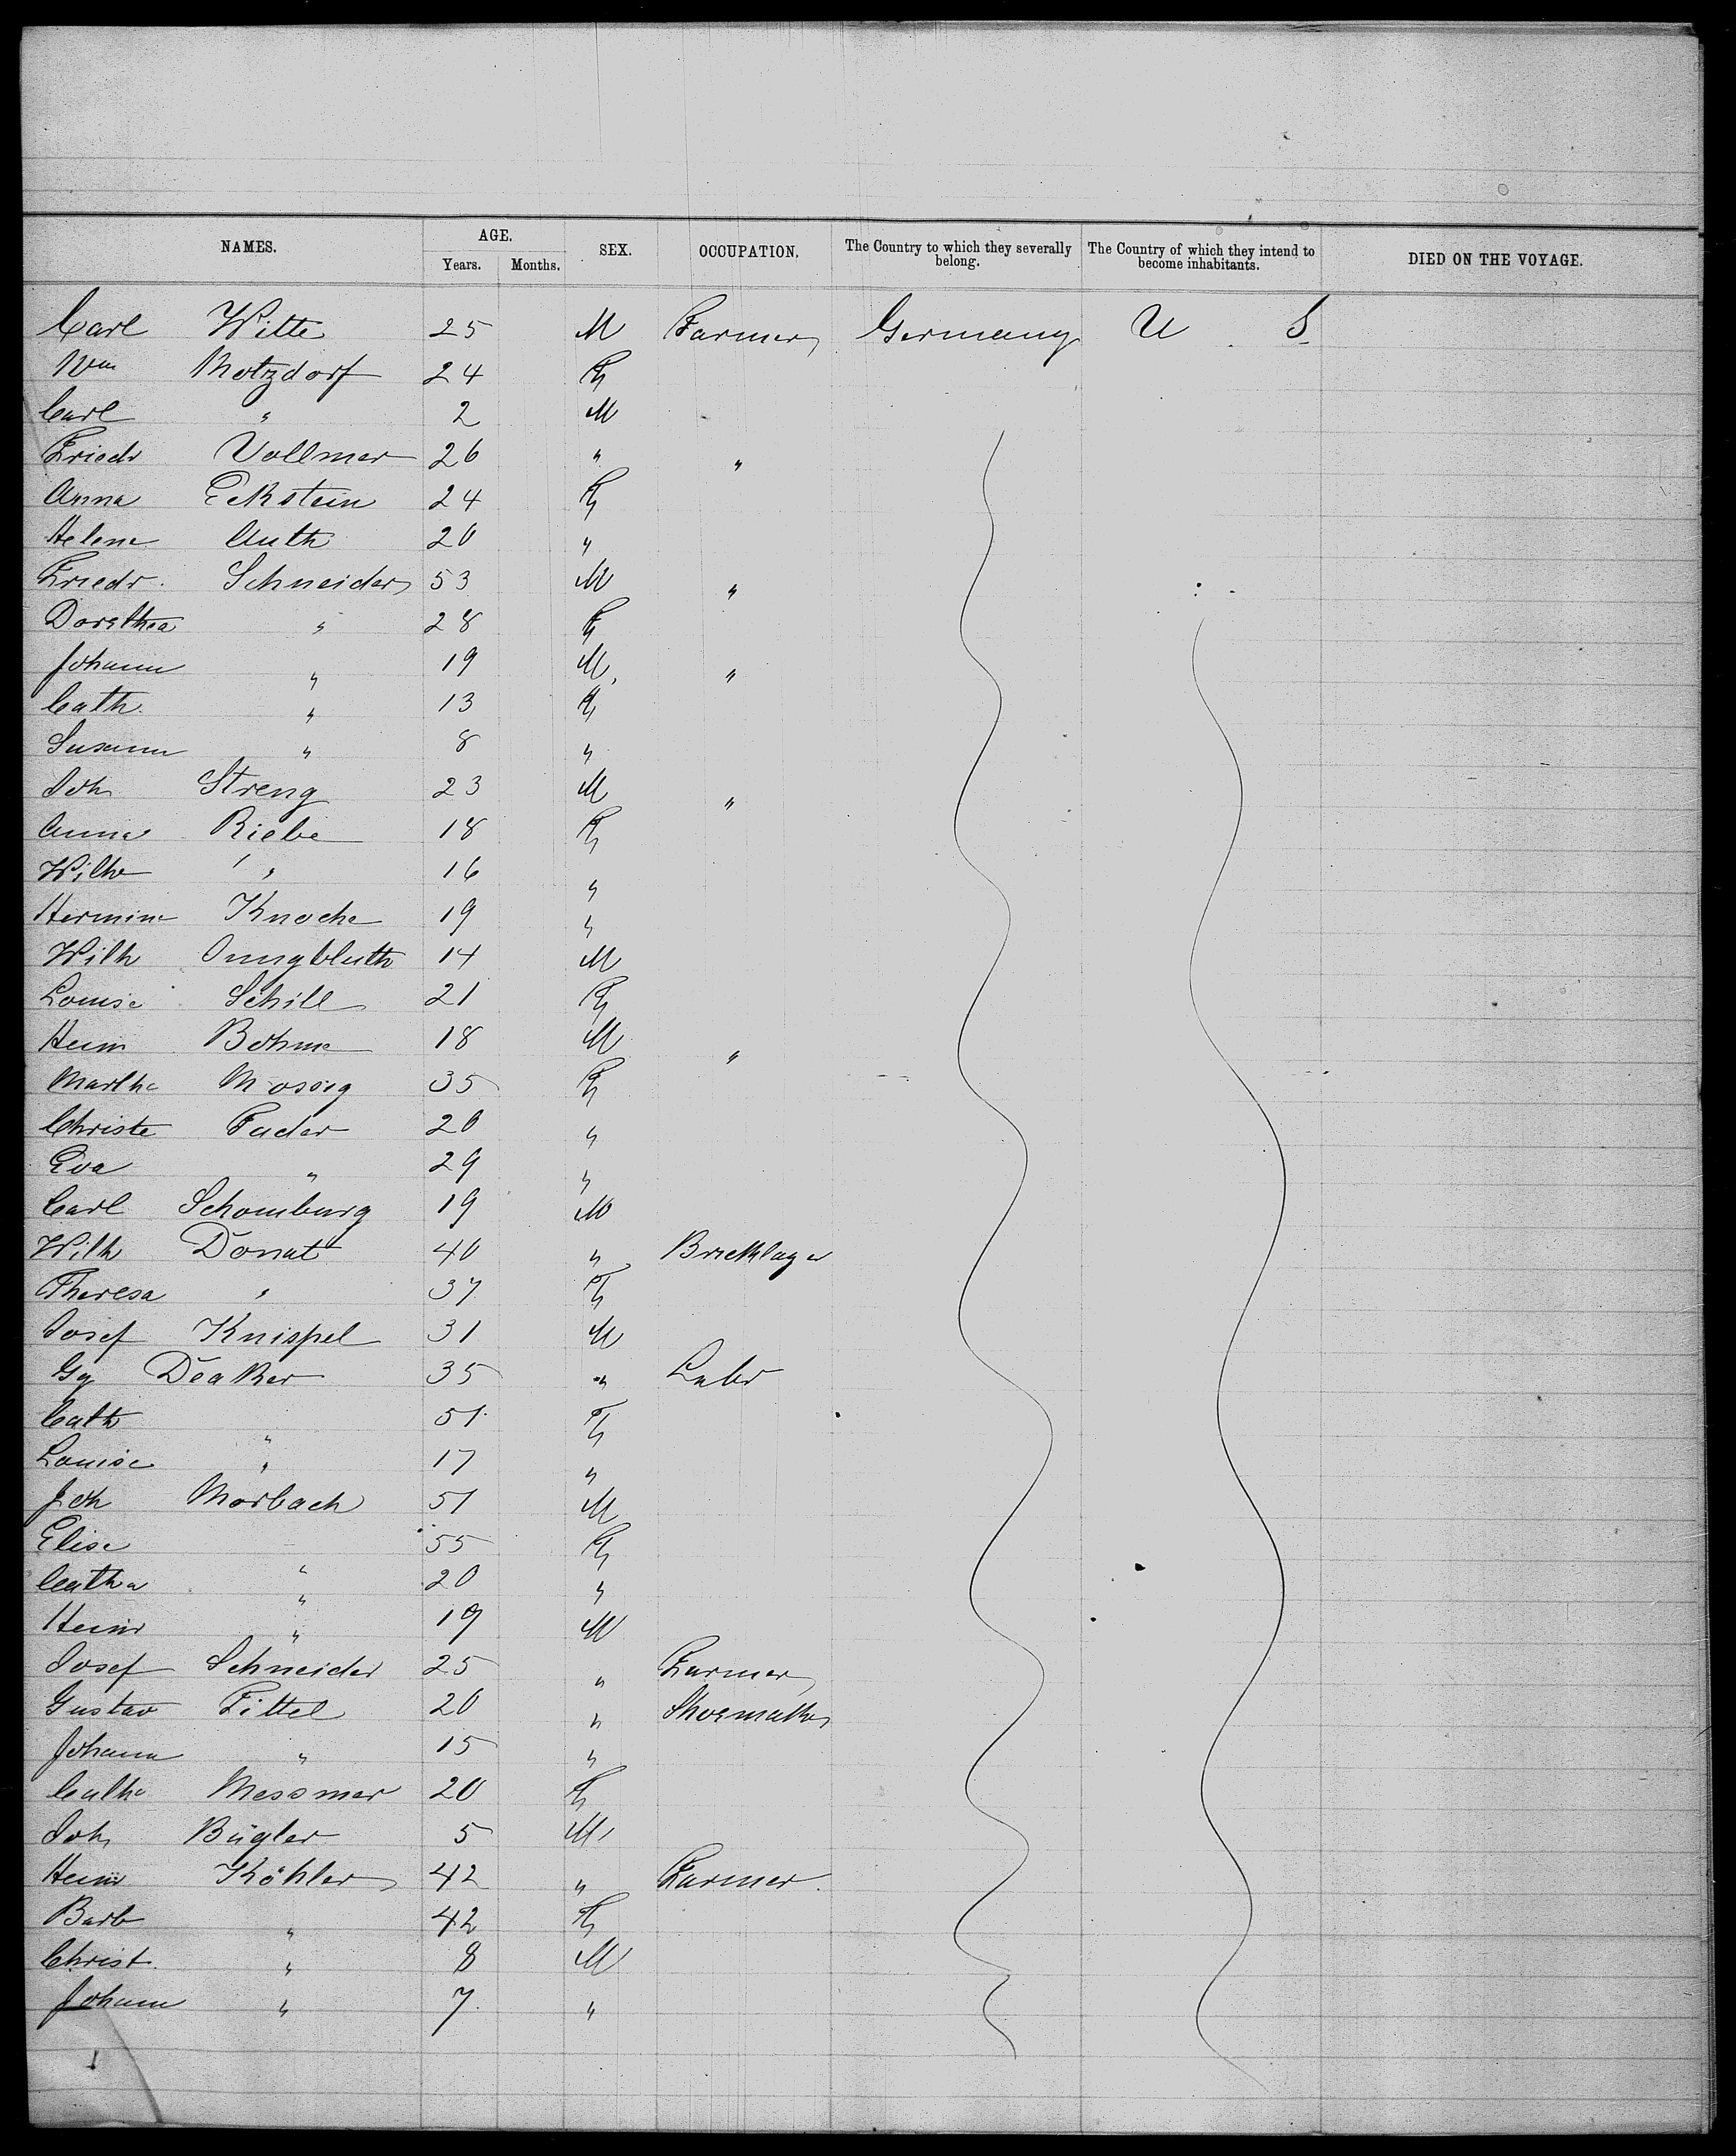 NAMES. AGE. SEX. OCCUPATION. The Country to which they severally belong. The Country of which they intend to become inhabitants. DIED ON THE VOYAGE.
Years. Months.
Carl Witte 25 M Farmer Germany U S
Wm Motzdorf 24 F
Carl " 2 M
Friedr Vollmer 26 " "
Anna Eckstein 24 F
Helene Auth 20 "
Friedr. Schneider 53 M "
Dorothea " 28 F
Johann " 19 M "
Cath. " 13 F
Susann " 8 "
Joh Streng 23 M "
Anna Riebe 18 F
Wilhe " 16 "
Hermine Knoche 19 "
Wilh Jungbluth 14 M
Louise Schill 21 F
Heinr Bohme 18 M "
Martha Mossig 35 F
Christe Fuder 20 "
Eva " 29 "
Carl Schomburg 19 M
Wilh Donat 40 " Bricklayer
Theresa " 37 F
Josef Knispel 31 M
Gg Deaker 35 " Labr
Cath " 51 F
Louise " 17 "
Joh Morbach 51 M
Elise " 55 F
Catha " 20 "
Heinr " 19 M
Josef Schneider 25 " Farmer
Gustav Fittel 20 " Shoemaker
Johann " 15 "
Catha Messmer 20 F
Joh Bügler 5 M
Heinr Köhler 42 " Farmer.
Barb " 42 F
Christ. " 8 M
Johann " 7. "